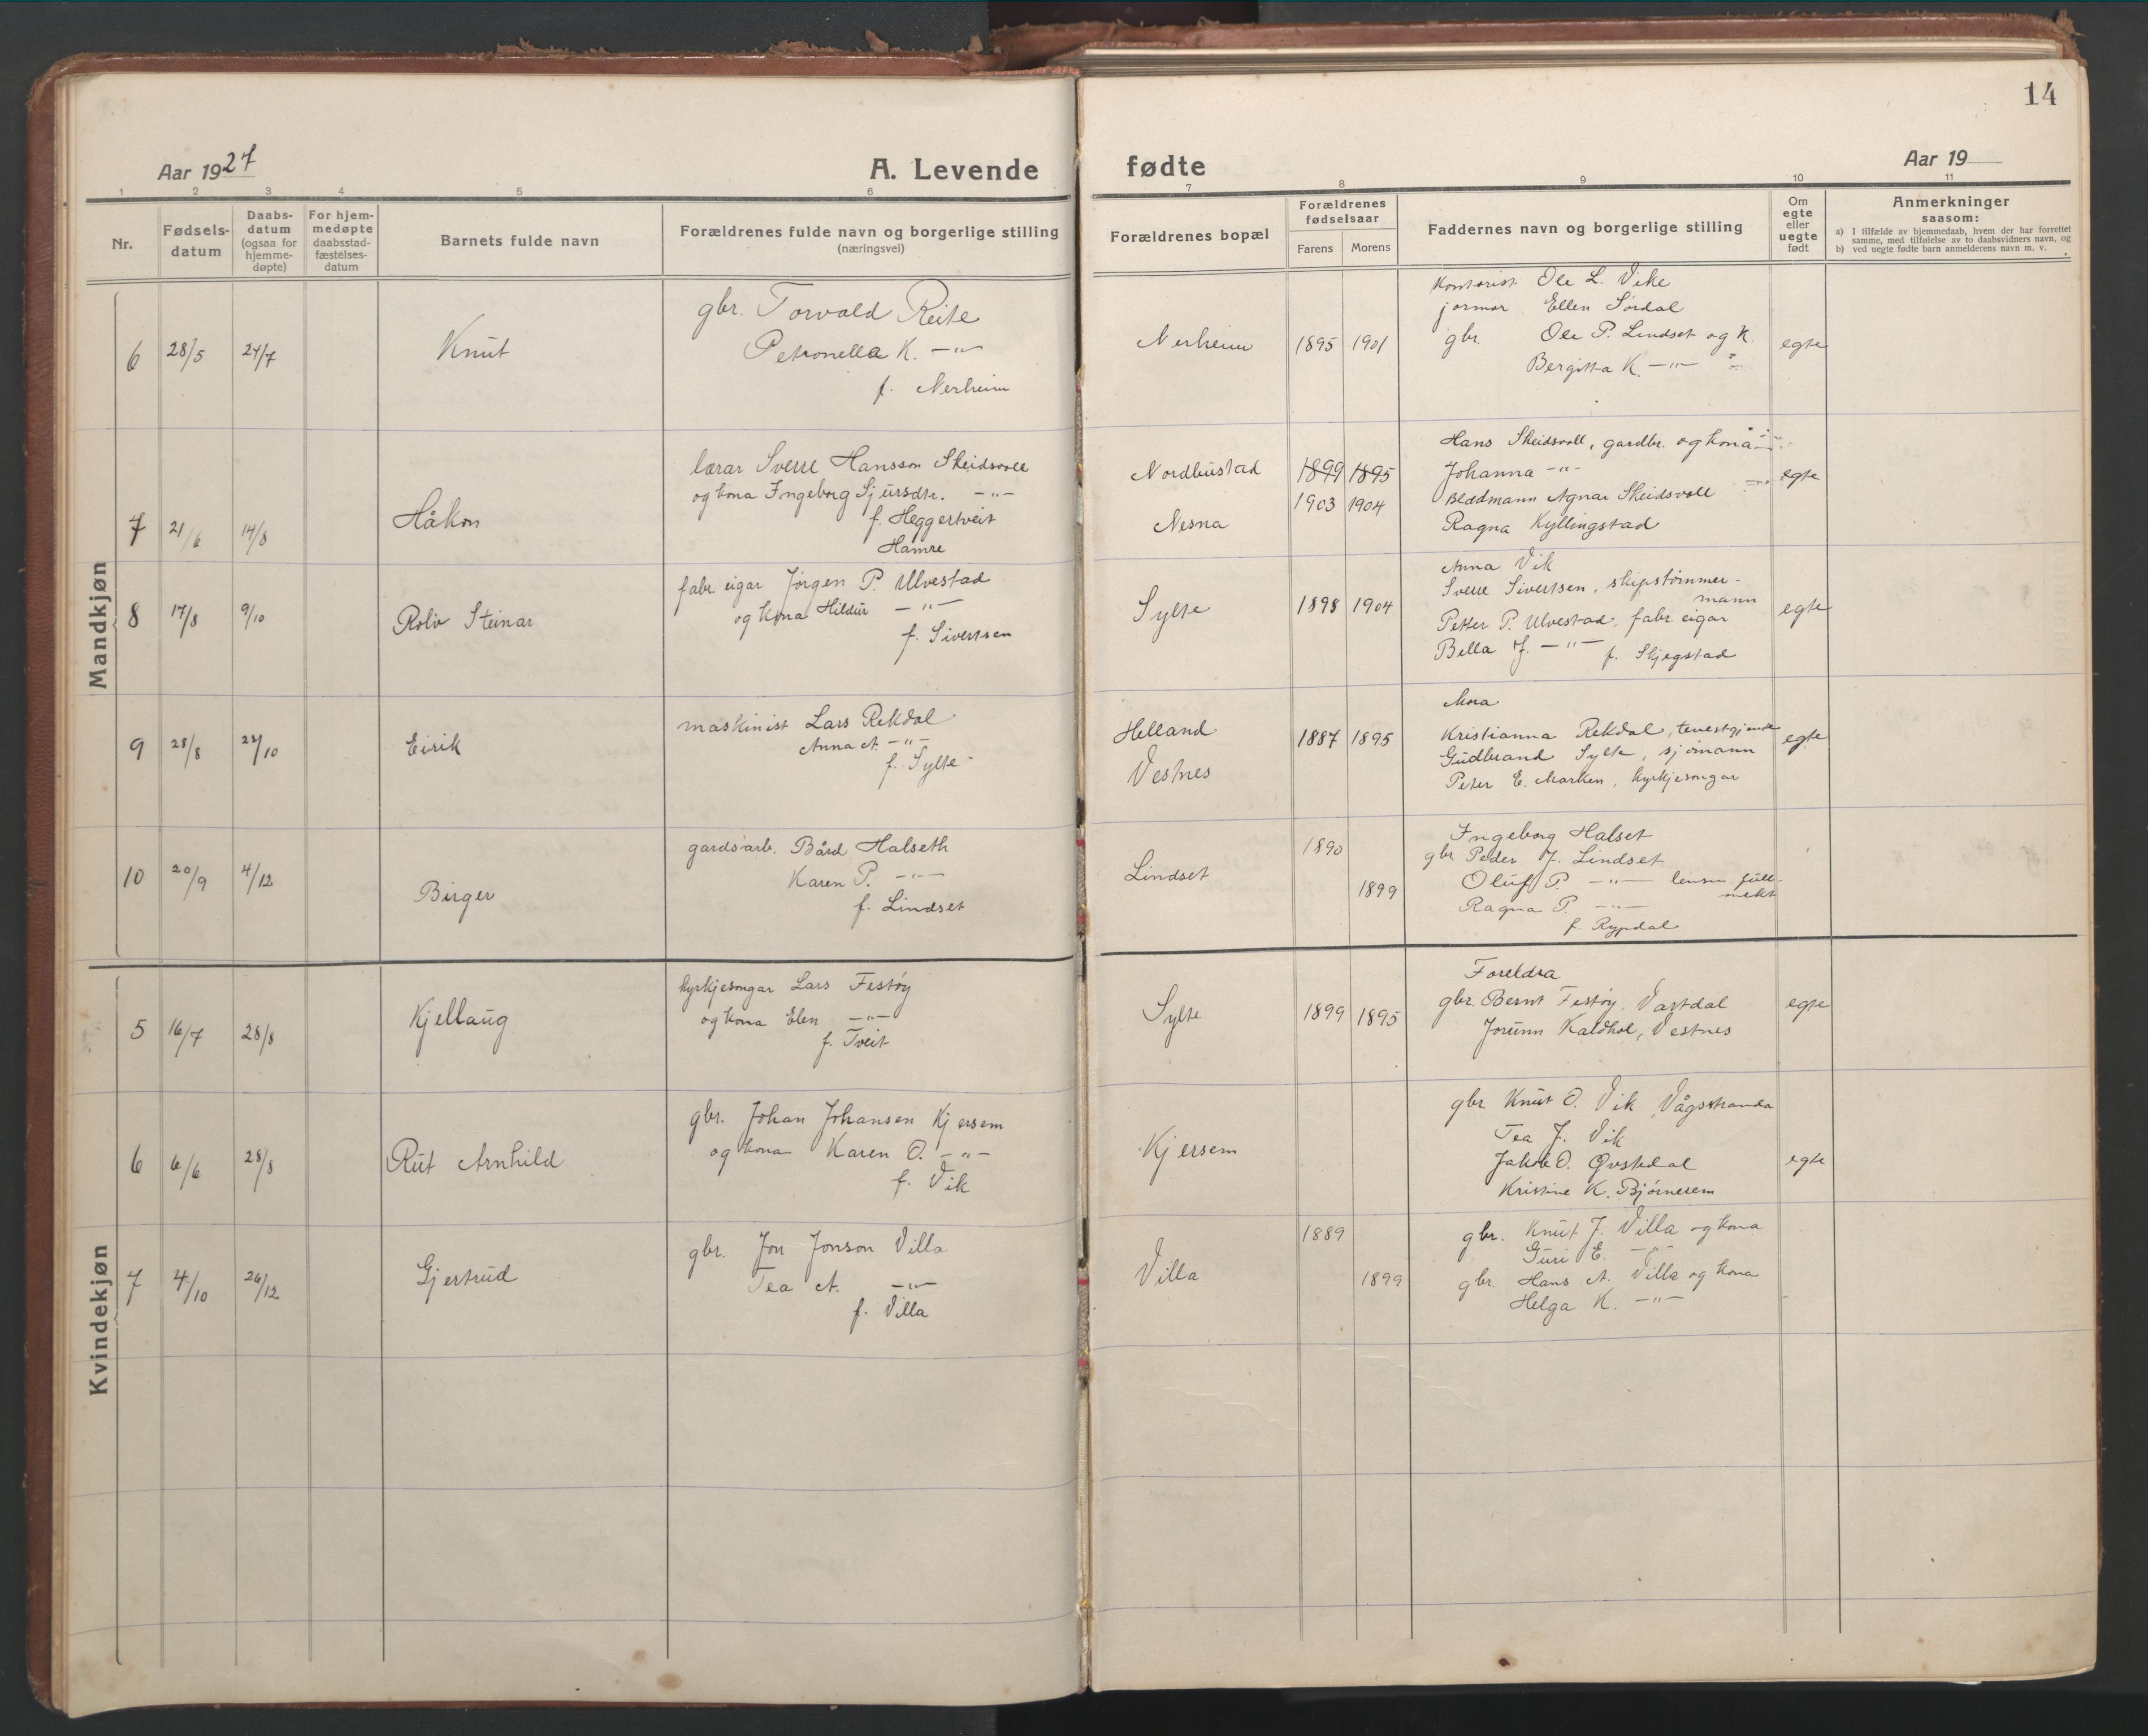 14
Aar 1927
A. Levende fødte
Aar 19
1 2 3 4 5 6 7 8 9 10 11
Nr.
Fødsels-
datum
Daabs-
datum
(ogsaa for
hjemme-
døpte)
For hjem-
medøpte
daabsstad-
fæstelses-
datum
Barnets fulde navn
Forældrenes fulde navn og borgerlige stilling
(næringsvei)
Forældrenes bopæl
Forældrenes
fødselsaar
Farens Morens
Faddernes navn og borgerlige stilling
Om
egte
eller
uegte
født
Anmerkninger
saasom:
a) I tilfælde av hjemmedaab, hvem der har forrettet
samme, med tilføielse av to daabsvidners navn, og
b) ved uegte fødte barn anmelderens navn m. v.
Mandkjøn
6 28/5 24/7 Knut
gbr. Torvald Reite
Petronella K. —"—
f. Nerheim
Nerheim 1895 1901
Kontorist Ole L. Vike
jormor Ellen Sørdal
gbr. Ole P. Lindset og K.
Bergitta K. —"—
egte
7 21/6 14/8 Håkon
lærar Sverre Hansson Skeidsvoll
og kona Ingeborg Sjursdtr. —"—
f. Heggertveit
Hamre
Nordhustad
Nesna
1899 1895
1903 1904
Hans Skeidsvoll, gardbr. og kona
Johanna —"—
Bladmann Agnar Skeidsvoll
Ragna Kyllingstad
egte
8 17/8 9/10 Rolv Steinar
fabr. eigar Jørgen P. Ulvestad
og kona Hildur —"—
f. Sivertsen
Sylte 1898 1904
Anna Vik
Sverre Sivertsen, skipstømmer-
mann
Petter P. Ulvestad, fabr. eigar
Bella J. —"— f. Skjegstad
egte
9 28/8 23/10 Eirik
maskinist Lars Rekdal
Anna A. —"—
f. Sylte
Helland
Vestnes
1887 1895
Mora
Kristianna Rekdal, tenestgjente
Gudbrand Sylte, sjømann
Peter E. Marken, kyrkjesongar
egte
10 20/9 4/12 Birger
gardsarb. Bård Halseth
Karen P. —"—
f. Lindset
Lindset 1890
1899
Ingeborg Halset
gbr Peder J. Lindset
Oluf P. —"— lensm. full-
mekt
Ragna P. —"—
f. Rypdal
Kvindekjøn
5 16/7 28/8 Kjellaug
kyrkjesongar Lars Festøy
og kona Elen —"—
f. Tveit
Sylte 1899 1895
Foreldra
gbr. Bernt Festøy, Vartdal
Jorunn Kaldhol, Vestnes
egte
6 6/6 28/8 Rut Arnhild
gbr. Johan Johansen Kjersem
og kona Karen O. —"—
f. Vik
Kjersem
gbr. Knut O. Vik, Vågstranda
Tea J. Vik
Jakob O. Øvstedal
Kristine K. Bjørnerem
egte
7 4/10 26/12 Gjertrud
gbr. Jon Jonson Villa
Tea A. —"—
f. Villa
Villa 1889
1899
gbr. Knut J. Villa og kona
Guri E. —"—
gbr. Hans A. Villa og kona
Helga K. —"—